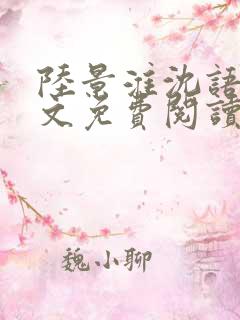 陸景淮沈語
文免費閱讀
魏小聊